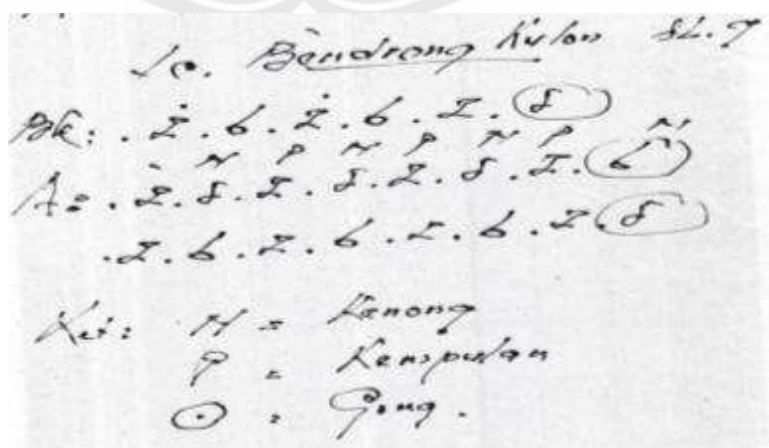 Lc. Bendrong Kulon SL. 9
Bk: . 2̇ . 6 . 2̇ . 6 . 2 . (5)
N P N P N P N
A: . 2 . 5 . 2 . 5 . 2 . 5 . 2 . (6)
. 2 . 6 . 2 . 6 . 2 . 6 . 2 (5)
Ket: N = Kenong
P = Kempulan
⊙ = Gong.